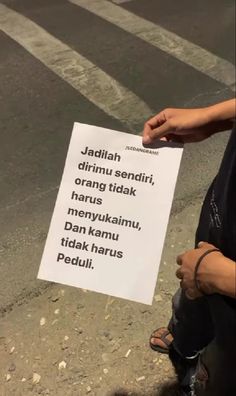 Jadilah
dirimu sendiri,
orang tidak
harus
menyukaimu,
Dan kamu
tidak harus
Peduli.